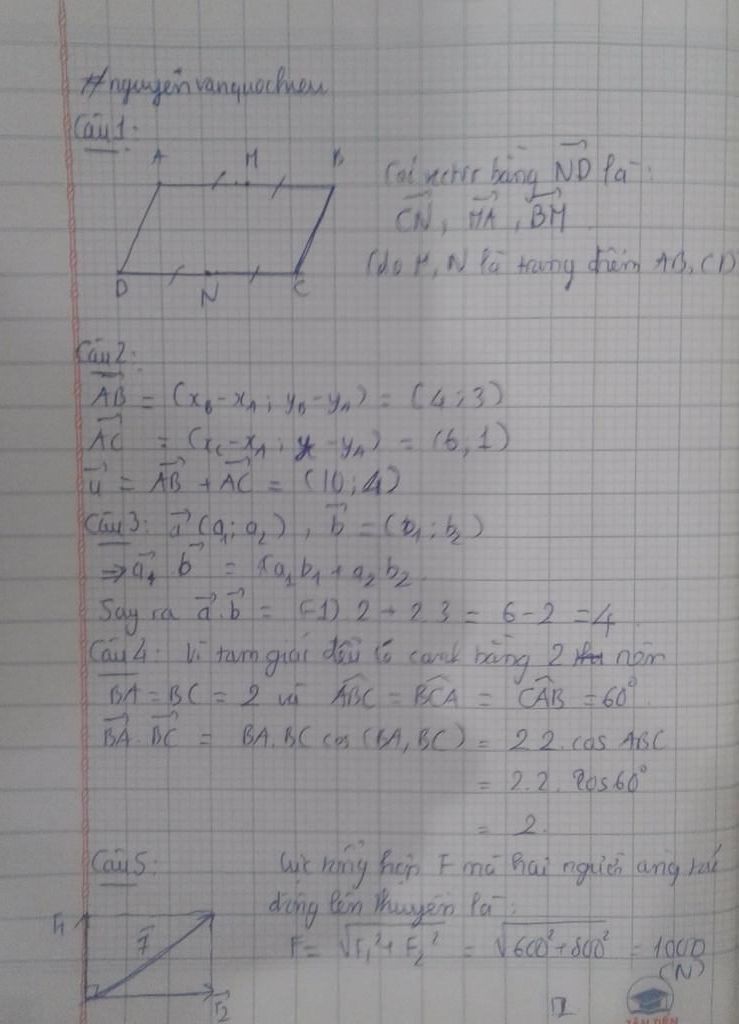 #nguyễnvanquochieu
Câu 1:
A M B
D N C
Các vectơ bằng ND là:
CN, MA, BM
(do M, N là trung điểm AB, CD
Câu 2:
AB = (x_B - x_A; y_B - y_A) = (4; 3)
AC = (x_C - x_A; y - y_A) = (6, 1)
u = AB + AC = (10; 4)
Câu 3: a (a₁; a₂), b = (b₁; b₂)
⇒ a b = a₁b₁ + a₂b₂.
Suy ra a.b = (-1) 2 + 2 3 = 6 - 2 = 4
Câu 4: Vì tam giác đều có cạnh bằng 2 nên
BA = BC = 2 và ABC = BCA = CAB = 60°
BA. BC = BA. BC cos (BA, BC) = 2 2. cos ABC
= 2. 2. cos 60°
= 2.
Câu 5: Lực tổng hợp F mà hai người
động lên thuyền là:
F₁ F F₂
F = √F₁² + F₂² = √600² + 800² = 1000
(N)